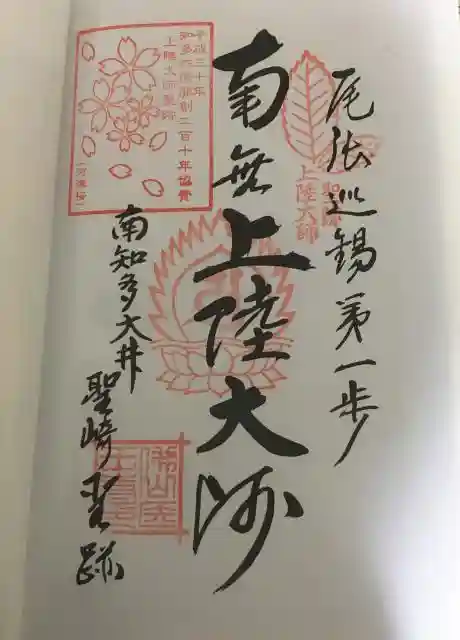 尾張巡錫第一歩
聖跡
上陸大師
南無上陸大師
南知多大井
聖崎聖跡
平成三十年
知多四国開創二百十年協賛
上陸大師聖跡
(河津桜)